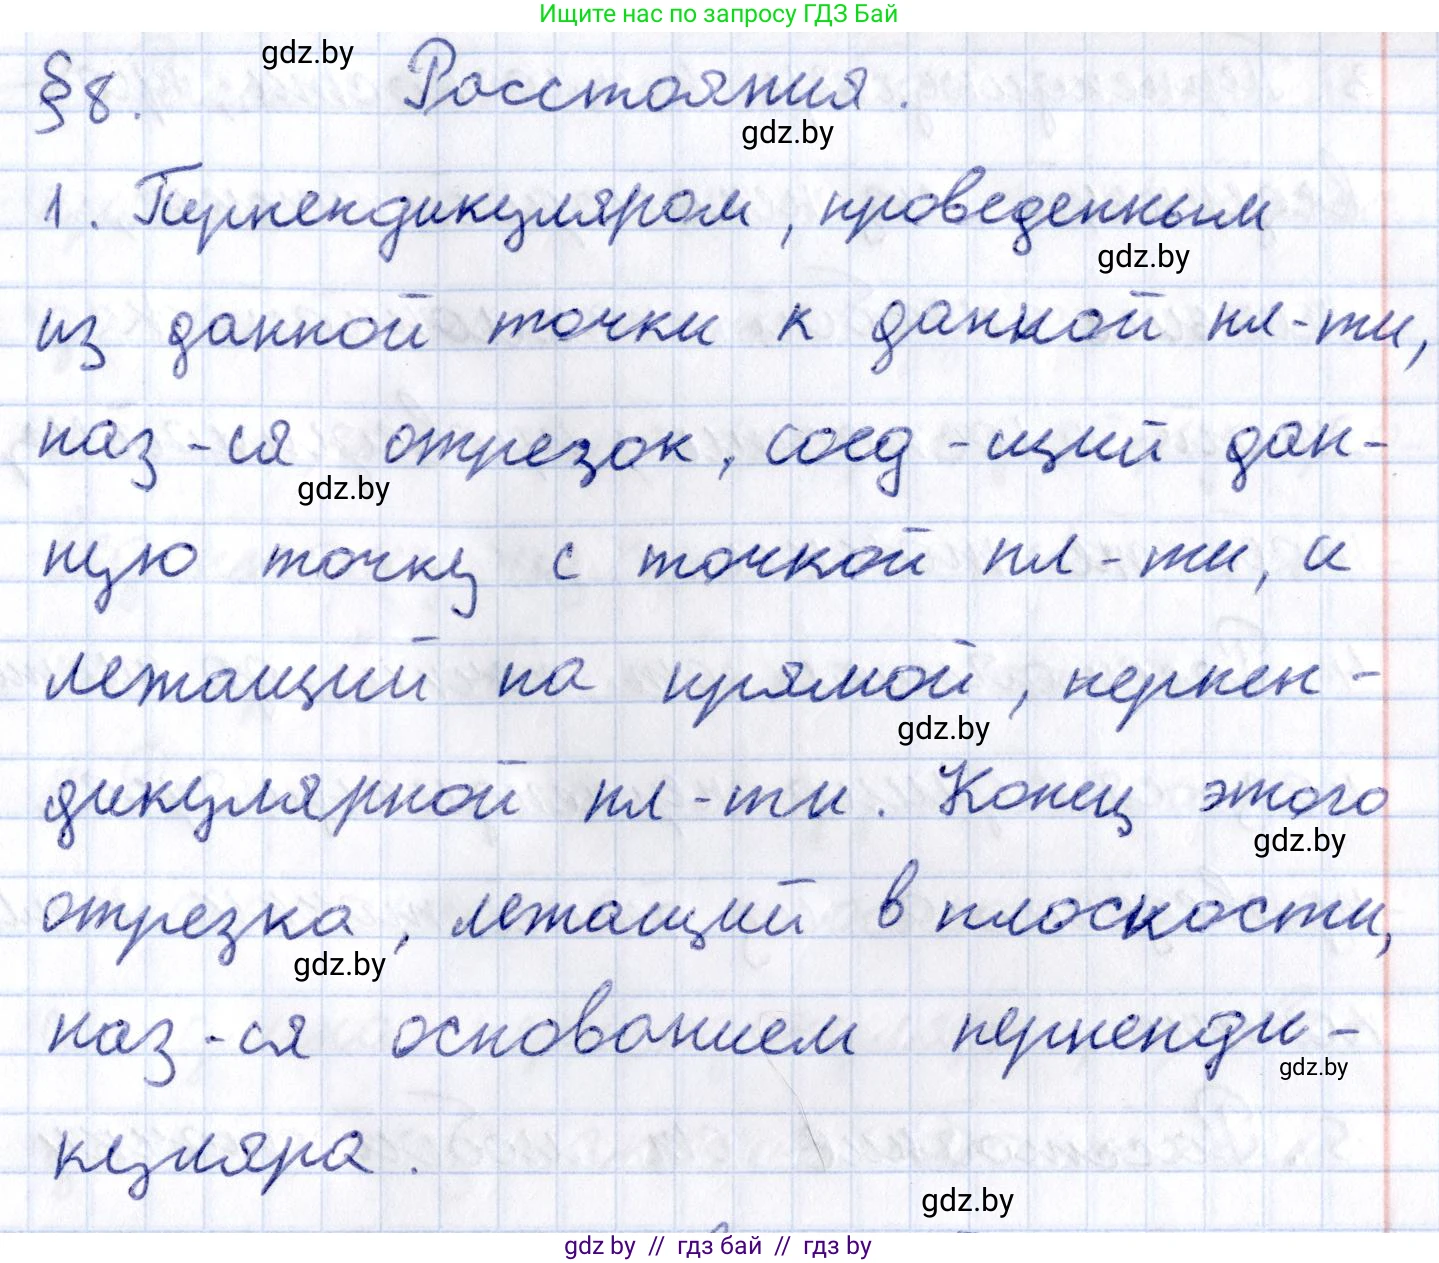 Ищите нас по запросу ГДЗ Бай
gdz.by
§8. Расстояния.
gdz.by
1. Перпендикуляром, проведенным
gdz.by
из данной точки к данной пл-ти,
наз-ся отрезок, соед-щий дан-
gdz.by
ную точку с точкой пл-ти, и
лежащий на прямой, перпен-
gdz.by
дикулярной пл-ти. Конец этого
gdz.by
отрезка, лежащий в плоскости,
gdz.by
наз-ся основанием перпенди-
gdz.by
куляра.
gdz.by
gdz by // гдз бай // гдз by